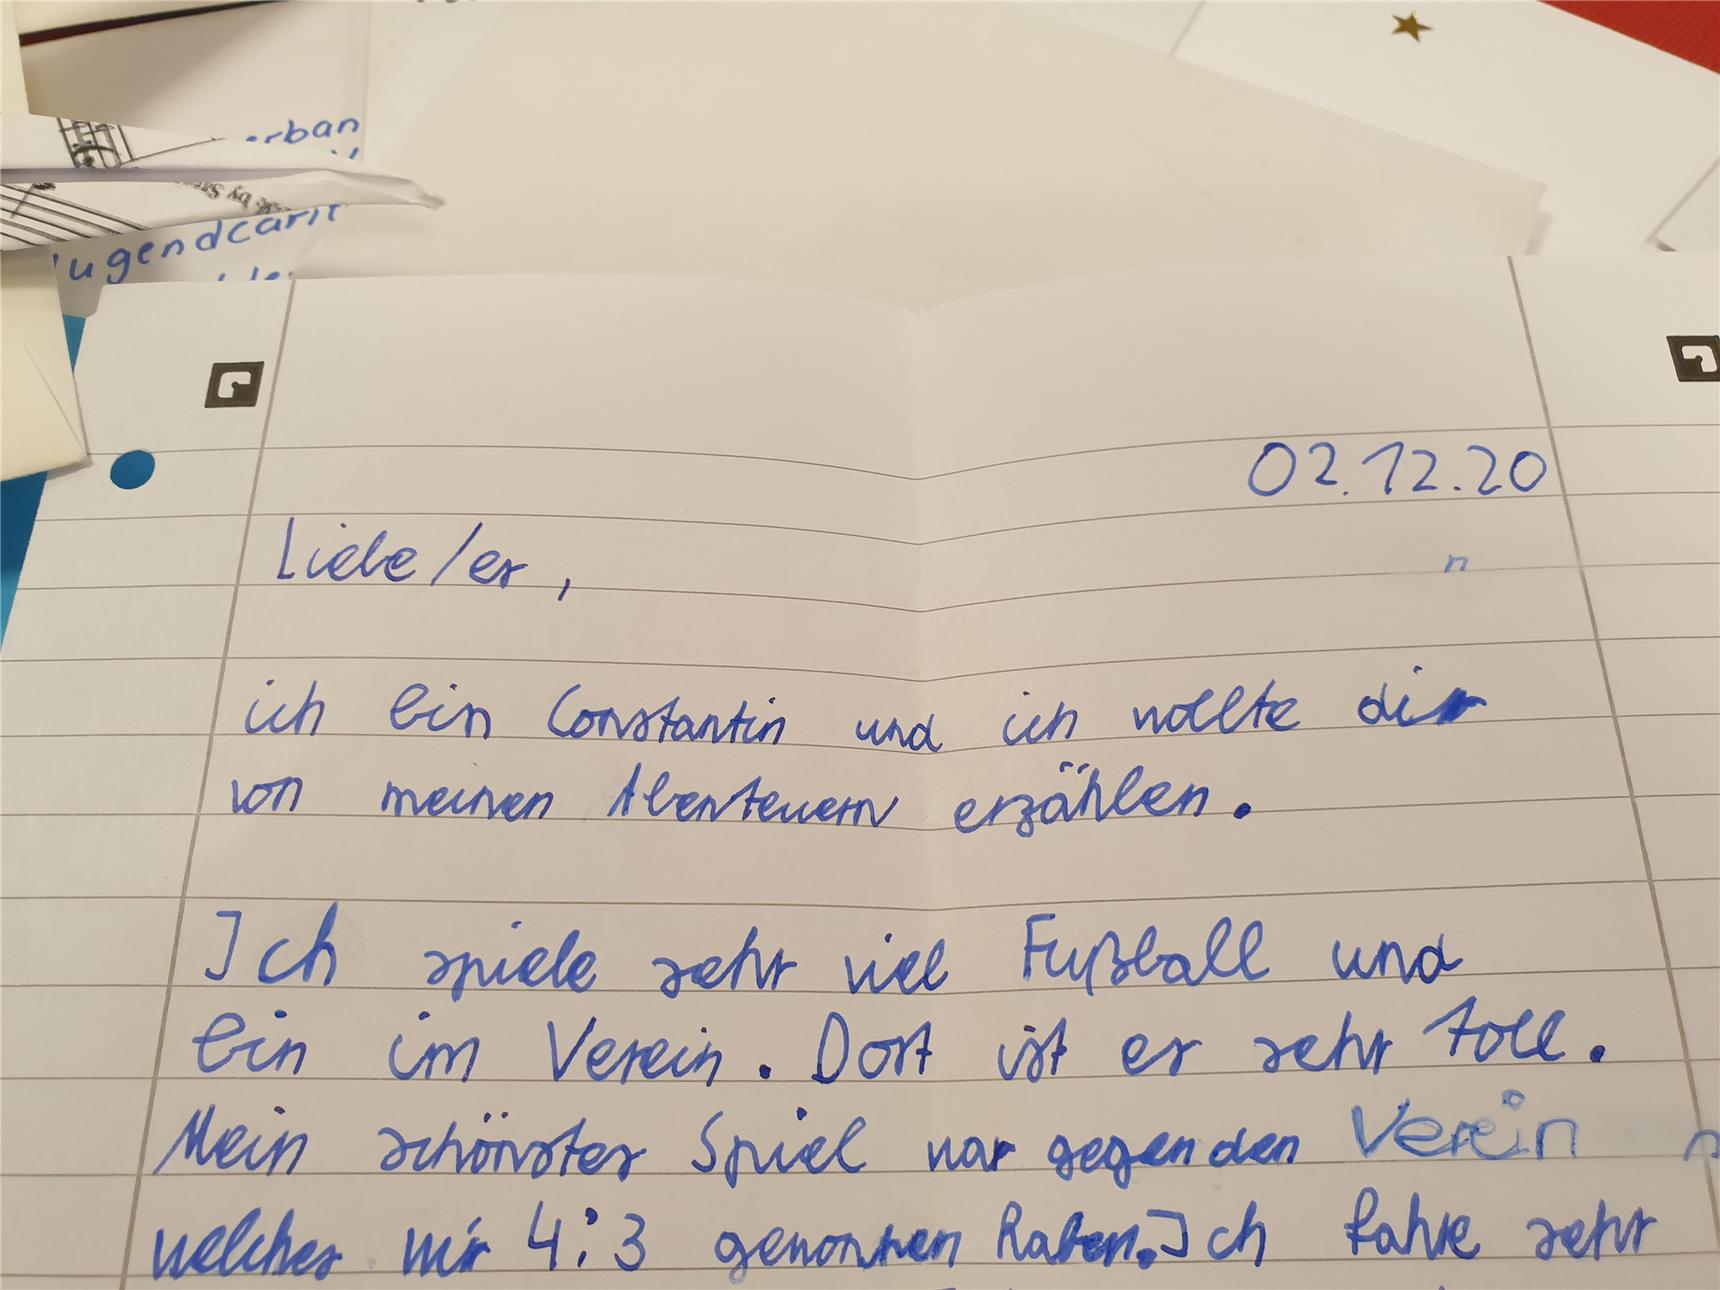 erban
Jugendcarit
02.12.20
Liebe/er,
n
ich bin Constantin und ich wollte dir
von meinen Abenteuern erzählen.
Ich spiele sehr viel Fußball und
bin im Verein. Dort ist es sehr toll.
Mein schönstes Spiel war gegen den Verein
welches wir 4:3 gewonnen haben. Ich fahre sehr